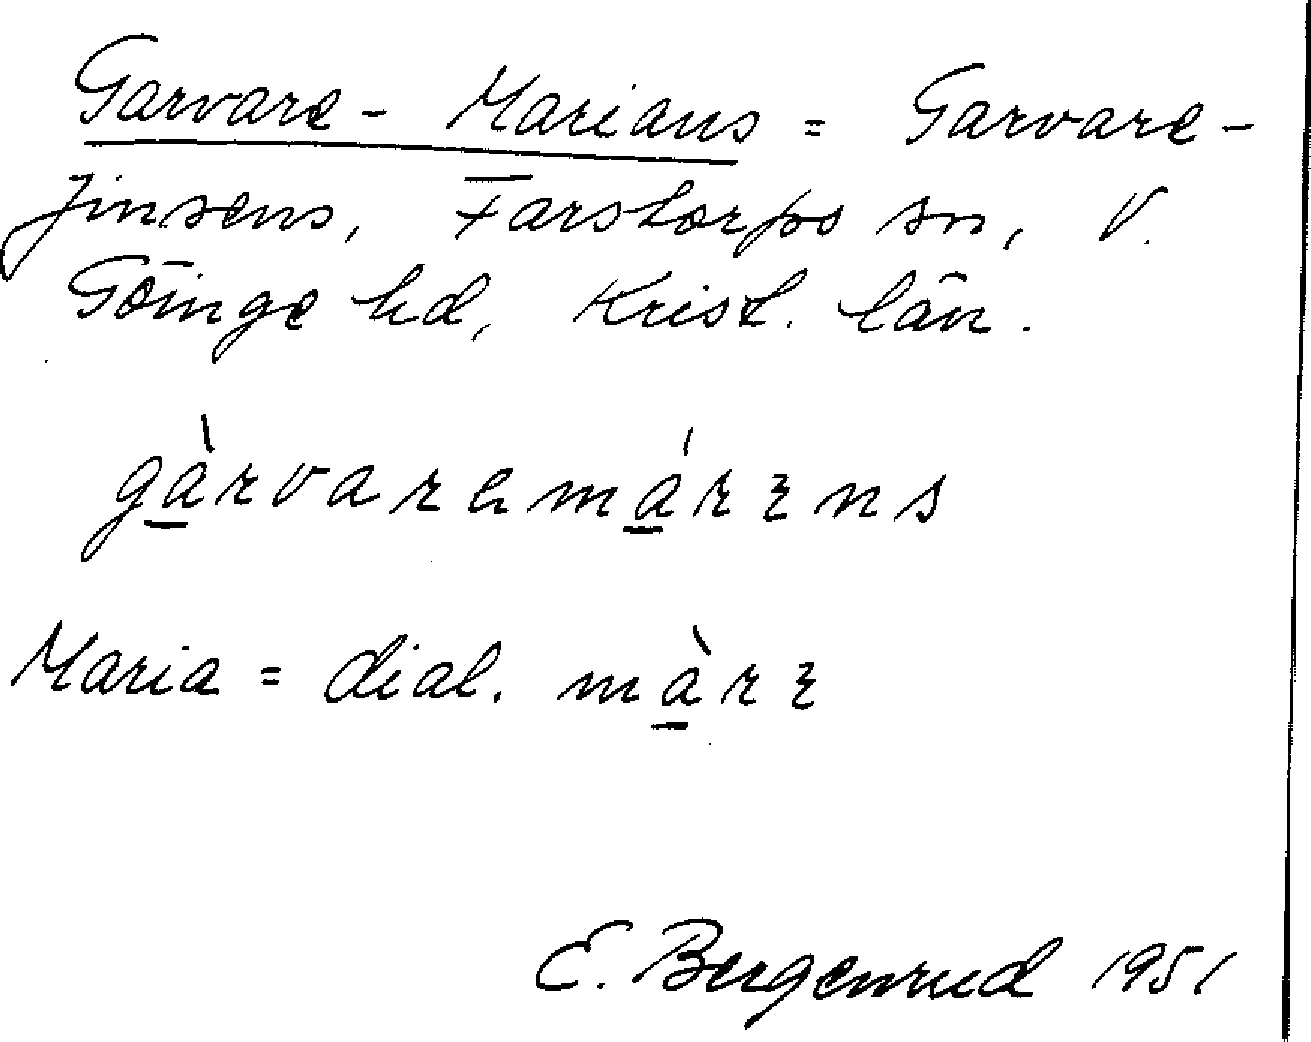 Garvare-Marians = Garvare-
Jinsens, Farstorps sn, V.
Göinge hd, Krist. län.
gàrvaremárɪns
Maria = dial. màrɪ
E. Bergenrud 1951